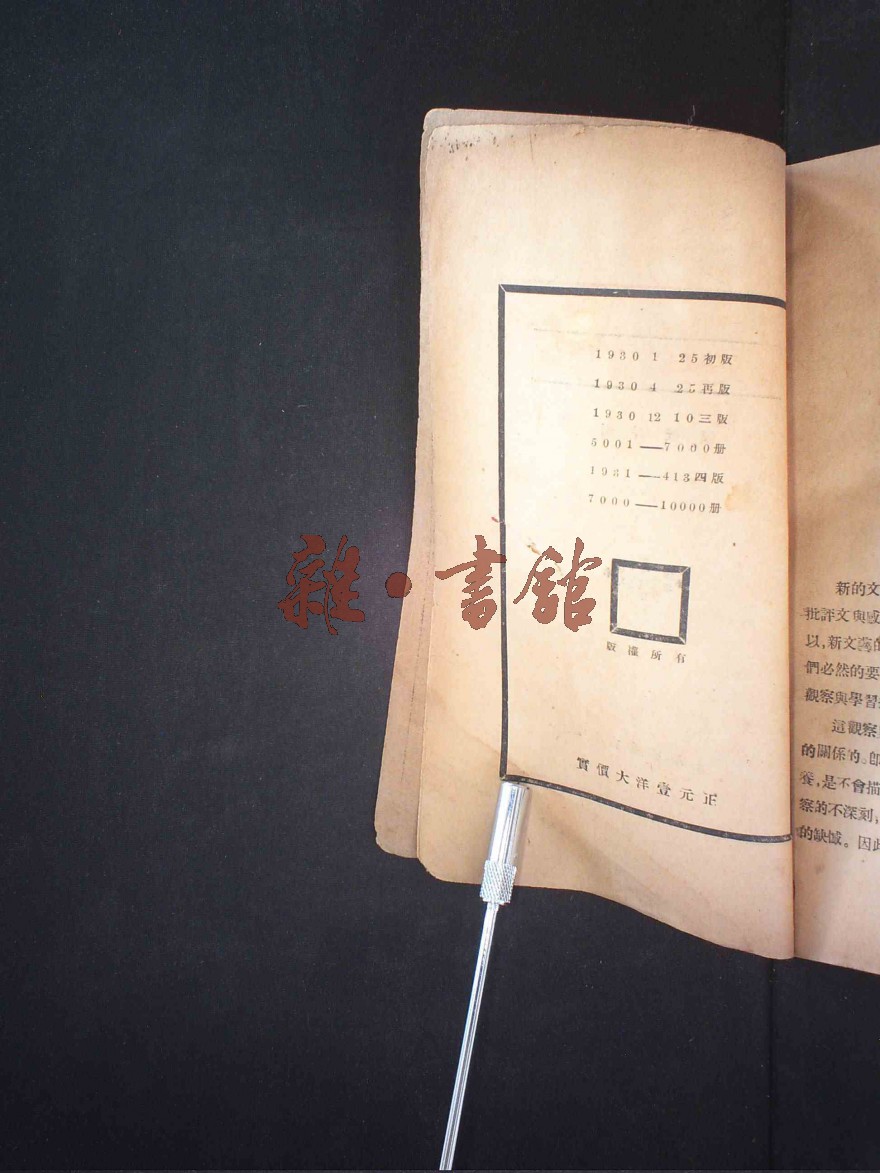 1930 1 25初版
1930 4 25再版
1930 12 10三版
5001—7000册
1931—413四版
7000—10000册
雜·書館
版權所有
實價大洋壹元正
新的文
批評文與感
以,新文藝的
們必然的要
觀察與學習
這觀察
的關係的。即
養,是不會描
察的不深刻,
的缺憾。因此